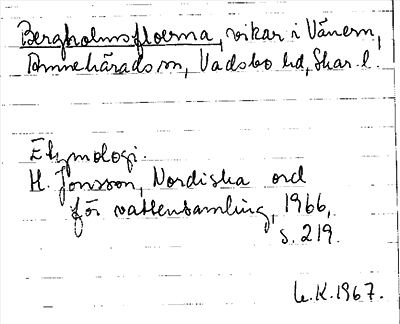 Bergholmsfloerna, vikar i Vänern,
Amnehärads sn, Vadsbo hd, Skar. l.
Etymologi.
H. Jonsson, Nordiska ord
för vattensamling, 1966,
s. 219.
L.K. 1967.